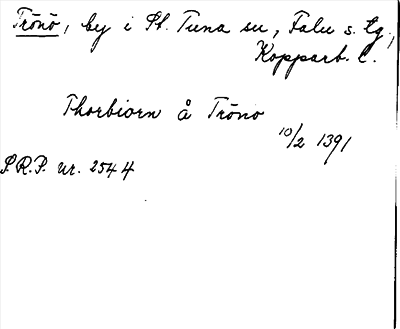 Trönö, by i St. Tuna sn, Falu s. tg.,
Kopparb. l.
Thorbiorn å Tröno
10/2 1391
S.R.P. nr. 2544